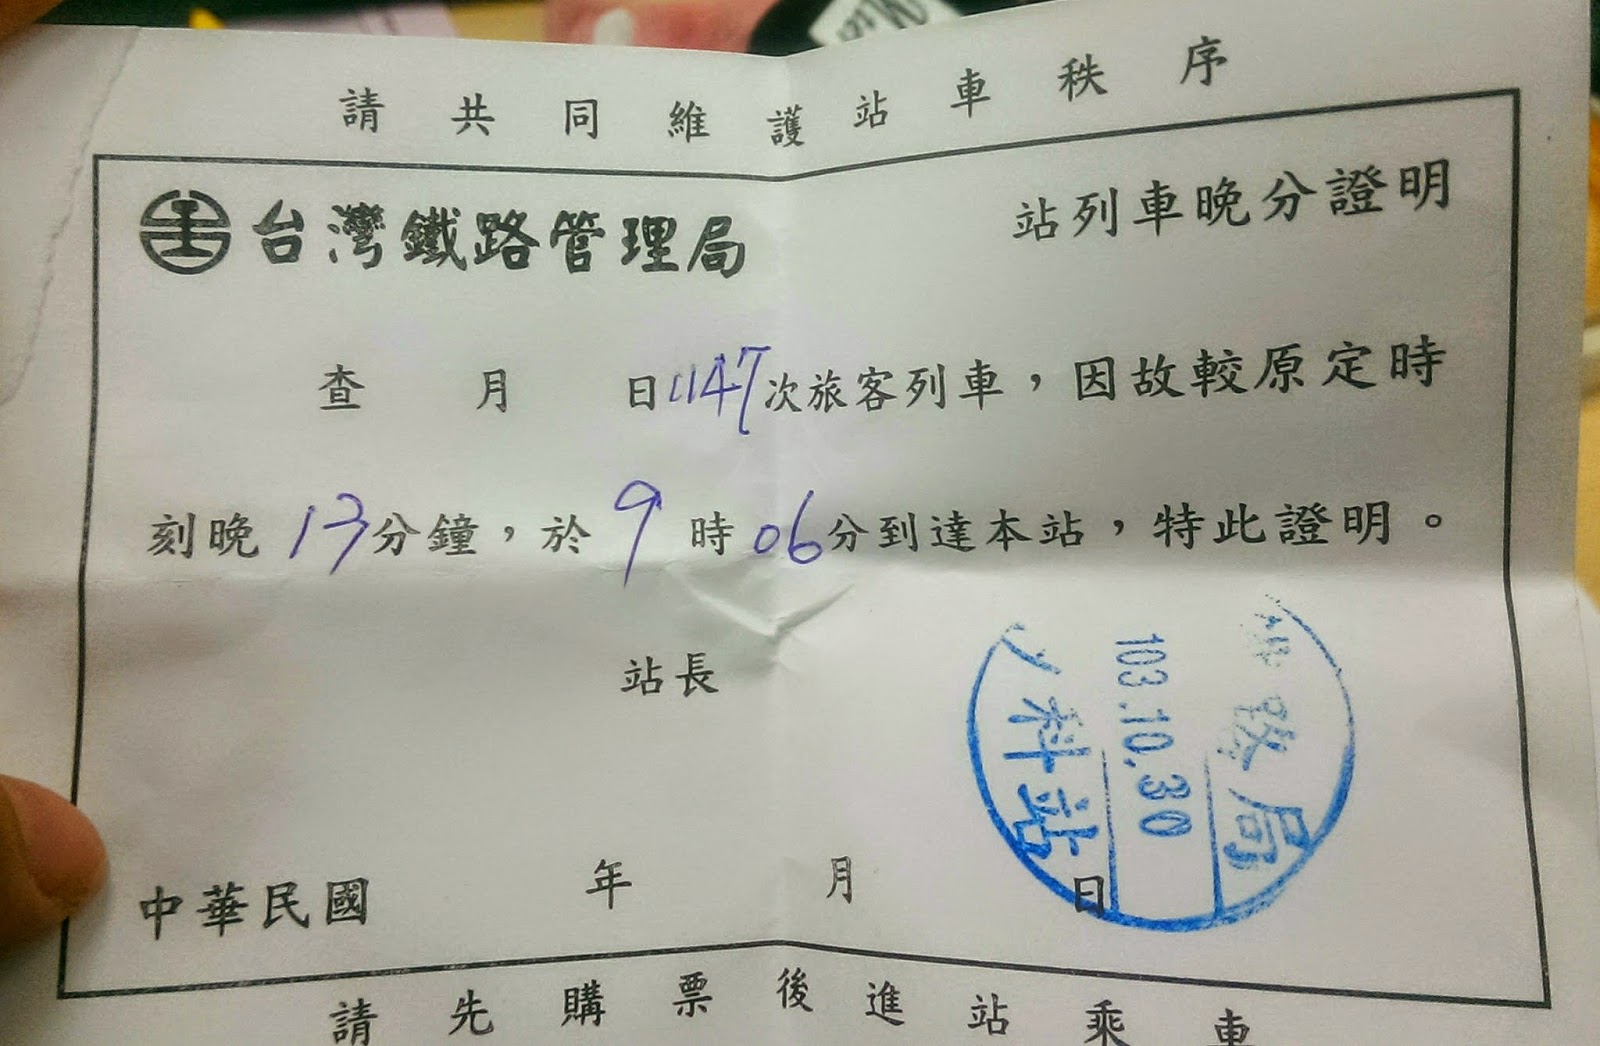 請共同維護站車秩序
台灣鐵路管理局
站列車晚分證明
查 月 日1147次旅客列車，因故較原定時
刻晚 13分鐘，於 9 時 06分到達本站，特此證明。
站長
局
103.10.30
科站
中華民國 年 月 日
請先購票後進站乘車